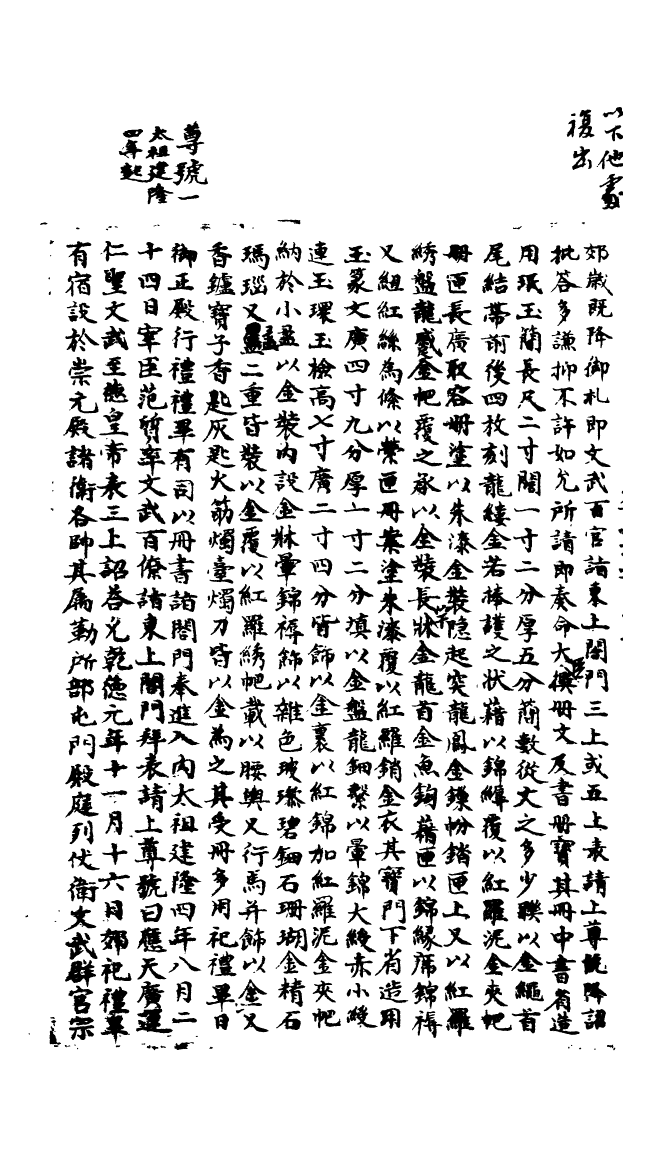 以下他處
複出
郊歲既降御札即文武百官諸東上閤門三上或五上表請上尊號降詔
批答多謙抑不許如允所請即奏命大臣撰冊文及書冊寶其冊中書省造
用珉玉簡長尺二寸闊一寸二分厚五分簡數從文之多少聯以金繩首
尾結帶前後四枚刻龍縷金若捧護之狀藉以錦縟覆以紅羅泥金夾帊
冊匣長廣取容冊塗以朱漆金裝隱起突龍鳳金鏁帉錔匣上又以紅羅
綉盤龍蹙金帊覆之承以金裝長竿牀金龍首金魚鉤藉匣以錦緣席錦褥
又紐紅絲為絛以縈匣冊案塗朱漆覆以紅羅銷金衣其寶門下省造用
玉篆文廣四寸九分厚一寸二分填以金盤龍鈕繫以暈錦大綬赤小綬
連玉環玉檢高七寸廣二寸四分皆飾以金裹以紅錦加紅羅泥金夾帊
納於小盝以金裝內設金牀暈錦褥飾以雜色玻瓈碧鈿石珊瑚金精石
瑪瑙又盝二重皆裝以金覆以紅羅綉帊載以腰輿又行馬并飾以金又
香鑪寶子香匙灰匙火筯燭臺燭刀皆以金為之其受冊多用祀禮畢日
御正殿行禮禮畢有司以冊書詣閤門奉進入內太祖建隆四年八月二
十四日宰臣范質率文武百僚諸東上閤門拜表請上尊號曰應天廣運
仁聖文武至德皇帝表三上詔答允乾德元年十一月十六日郊祀禮畢
有宿設於崇元殿諸衛各帥其屬勤所部屯門殿庭列仗衛文武群官宗
尊號一
太祖建隆
四年起